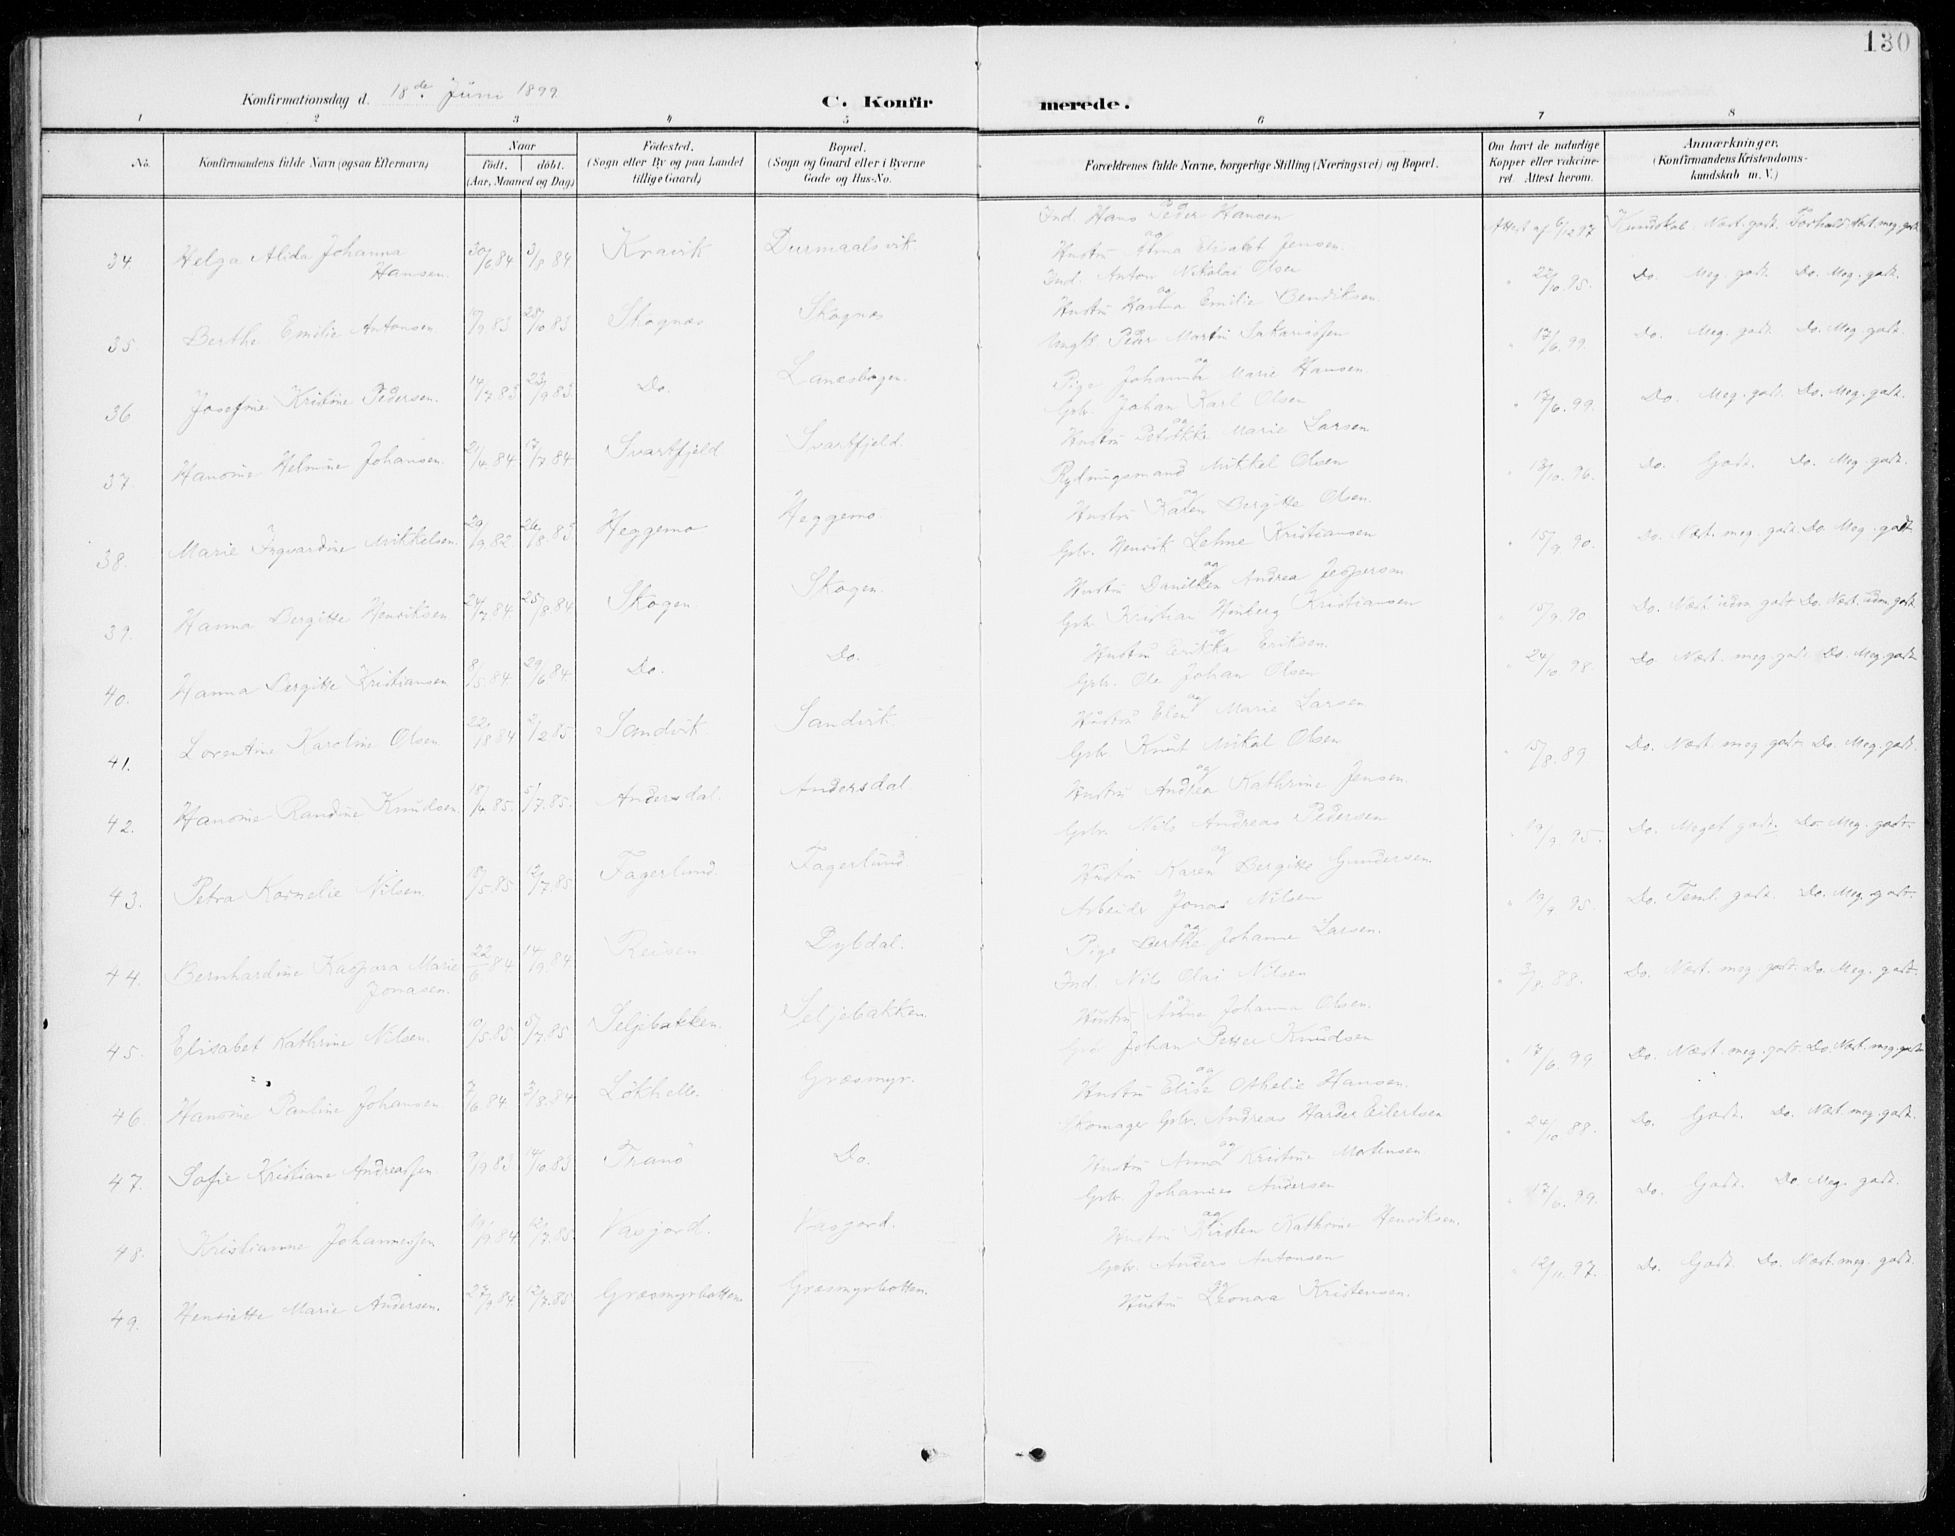 130
Konfirmationsdag d. 18de Juni 1899
C. Konfirmerede.
1 2 3 4 5 6 7 8
No. Konfirmandens fulde Navn (ogsaa Efternavn) Naar født. døbt. (Aar, Maaned og Dag) Fødested. (Sogn eller By og paa Landet tillige Gaard) Bopæl. (Sogn og Gaard eller i Byerne Gade og Hus-No. Forældrenes fulde Navne, borgerlige Stilling (Næringsvei) og Bopæl. Om havt de naturlige Kopper eller vakcineret. Attest herom. Anmærkninger. (Konfirmandens Kristendomskundskab m. V.)
34 Helga Alida Johanna Hansen. 30/6 84 3/8 84 Kravik Durmaalsvik Ind. Hans Peder Hansen og Hustru Anna Elisabet Jensen. Attest af 6/12 97 Kundskab Næst. godt. Forhold Næst. meg. godt.
35. Berthe Emilie Antonsen 17/9 83 28/10 83 Skognæs Skognæs Ind. Anton Nikolai Olsen og Hustru Hanna Emilie Bendiksen. " 22/10. 95. Do. Meg. godt. Do. Meg. godt.
36 Josefine Kristine Pedersen. 14/7 83 23/9 83. Do. Lanesbogen. Ungk. Peder Martin Sakariassen og Pige Johanna Marie Hansen " 17/6. 99. Do. Meg. godt. Do. Meg. godt.
37. Hansine Helmine Johansen. 2/4. 84 17/7. 84. Svartfjeld Svartfjeld. Gbr. Johan Karl Olsen og Hustru Petrikke Marie Larsen " 17/6. 99. Do. Meg. godt. Do. Meg. godt.
38. Marie Ingvardine Mikkelsen. 29/9 82 26/8. 83. Heggemo Heggemo Rydningsmand Mikkel Olsen og Hustru Karen Bergitte Olsen. " 13/10. 96. Do. Godt. Do. Meg. godt.
39. Hanna Bergitte Henriksen 24/7 84 25/8 84 Skogen Skogen. Gbr. Henrik Lehne Kristiansen og Hustru Danilken Andrea Jespersen " 15/9. 90. Do. Næst. meg. godt Do. Meg. godt
40. Hanna Bergitte Kristiansen 8/5. 84. 29/6 84 Do. Do. Gbr. Kristian Hemberg Kristiansen og Hustru Erikka Eriksen. " 15/9. 90 Do. Næst. udm. godt Do. Næst. udm. godt
41. Lorentine Karoline Olsen 22/8 84 2/2 85. Sandvik Sandvik Gbr. Ole Johan Olsen og Hustru Elen Marie Larsen " 24/10 98. Do Næst. meg. godt Do. Meg. godt
42. Hansine Randine Knudsen. 18/4 85. 5/7. 85. Andersdal. Andersdal Gbr Knut Mikal Olsen og Hustru Andrea Kathrine Jensen. " 15/8. 89 Do. Næst. meg. godt. Do. Meg. godt.
43. Petra Kornelie Nilsen. 18/5. 85. 12/7. 85 Fagerlund. Fagerlund. Gbr. Nils Andreas Pedersen og Hustru Karen Bergitte Gundersen. " 19/9 95. Do. Meget godt. Do. Meg. godt.
44. Bernhardine Kaspara Marie Jonasen. 22/6 84 14/9. 84. Reisen Dybdal. Arbeider Jonas Nilsen og Pige Berthe Johanne Larsen. " 19/9 95. Do. Teml. godt. Do. Meg. godt.
45. Elisabet Kathrine Nilsen. 10/5. 85 5/7. 85 Seljebakken. Seljebakken. Ind. Nils Olai Nilsen og Hustru Anne Johanna Olsen. " 3/8. 88. Do. Næst. meg. godt. Do. Meg. godt.
46. Hansine Pauline Johansen 7/6. 84 3/8. 84 Løkhelle Græsmyr. Gbr Johan Petter Knudsen og Hustru Elise Othelie Hansen. " 17/6. 99 Do. Næst. meg. godt. Do. Næst. meg. godt
47. Sofie Kristiane Andreassen. 9/9 83 14/10. 83 Tranø Do. Skomager Gbr. Andreas Harder Eilertsen og Hustru Anna Kristine Mortensen " 24/10 88. Do. Godt. Do. Næst. meg. godt.
48. Kristianne Johannessen 19/9. 84 12/7. 85. Vasjord. Vasjord. Gbr. Johannes Andersen og Hustru Kirsten Kathrine Henriksen. " 17/6. 99. Do. Godt. Do. Meg. godt.
49. Henriette Marie Andersen. 27/9 84. 12/7. 85 Græsmyrbotten. Græsmyrbotten. Gbr. Anders Antonsen og Hustru Leonora Kristensen. " 12/11. 97. Do. Godt. Do. Næst. meg. godt.